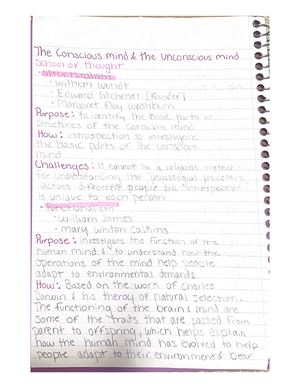 The Conscious mind & the unconscious mind
School of thought
• Structuralism
- Wilhelm Wundt
- Edward Titchener (
- Margaret Floy Washburn
Purpose: To identify the basic parts or
structures of the conscious mind
How: introspection to investigate
the basic parts of the conscious
mind
Challenges: It cannot be a reliable method
for understanding the psychological processes
across different people b/c introspection
is unique to each person
• Functionalism
- William James
- mary whiton calkins
Purpose: investigate the function of the
human mind & to understand how the
operations of the mind help people
adapt to environmental demands
How: Based on the work of Charles
Darwin & his theroy of natural selection.
The functioning of the brain & mind are
some of the traits that are passed from
parent to offspring, which helps explain
how the human mind has evolved to help
people adapt to their environment & bear